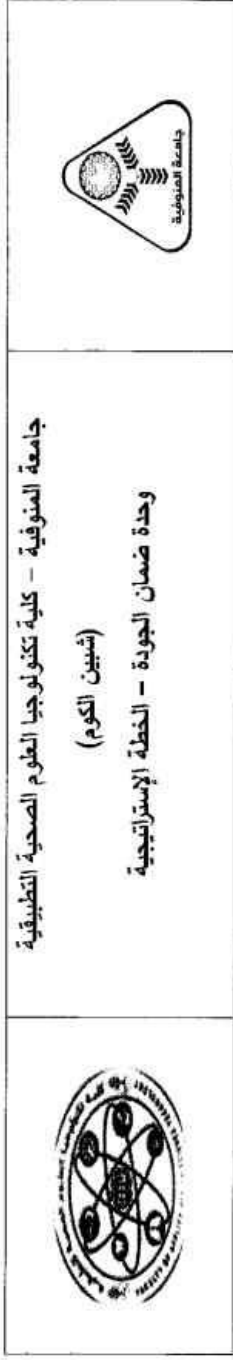 جامعة المنوفية
جامعة المنوفية – كلية تكنولوجيا العلوم الصحية التطبيقية
(شبين الكوم)
وحدة ضمان الجودة – الخطة الإستراتيجية